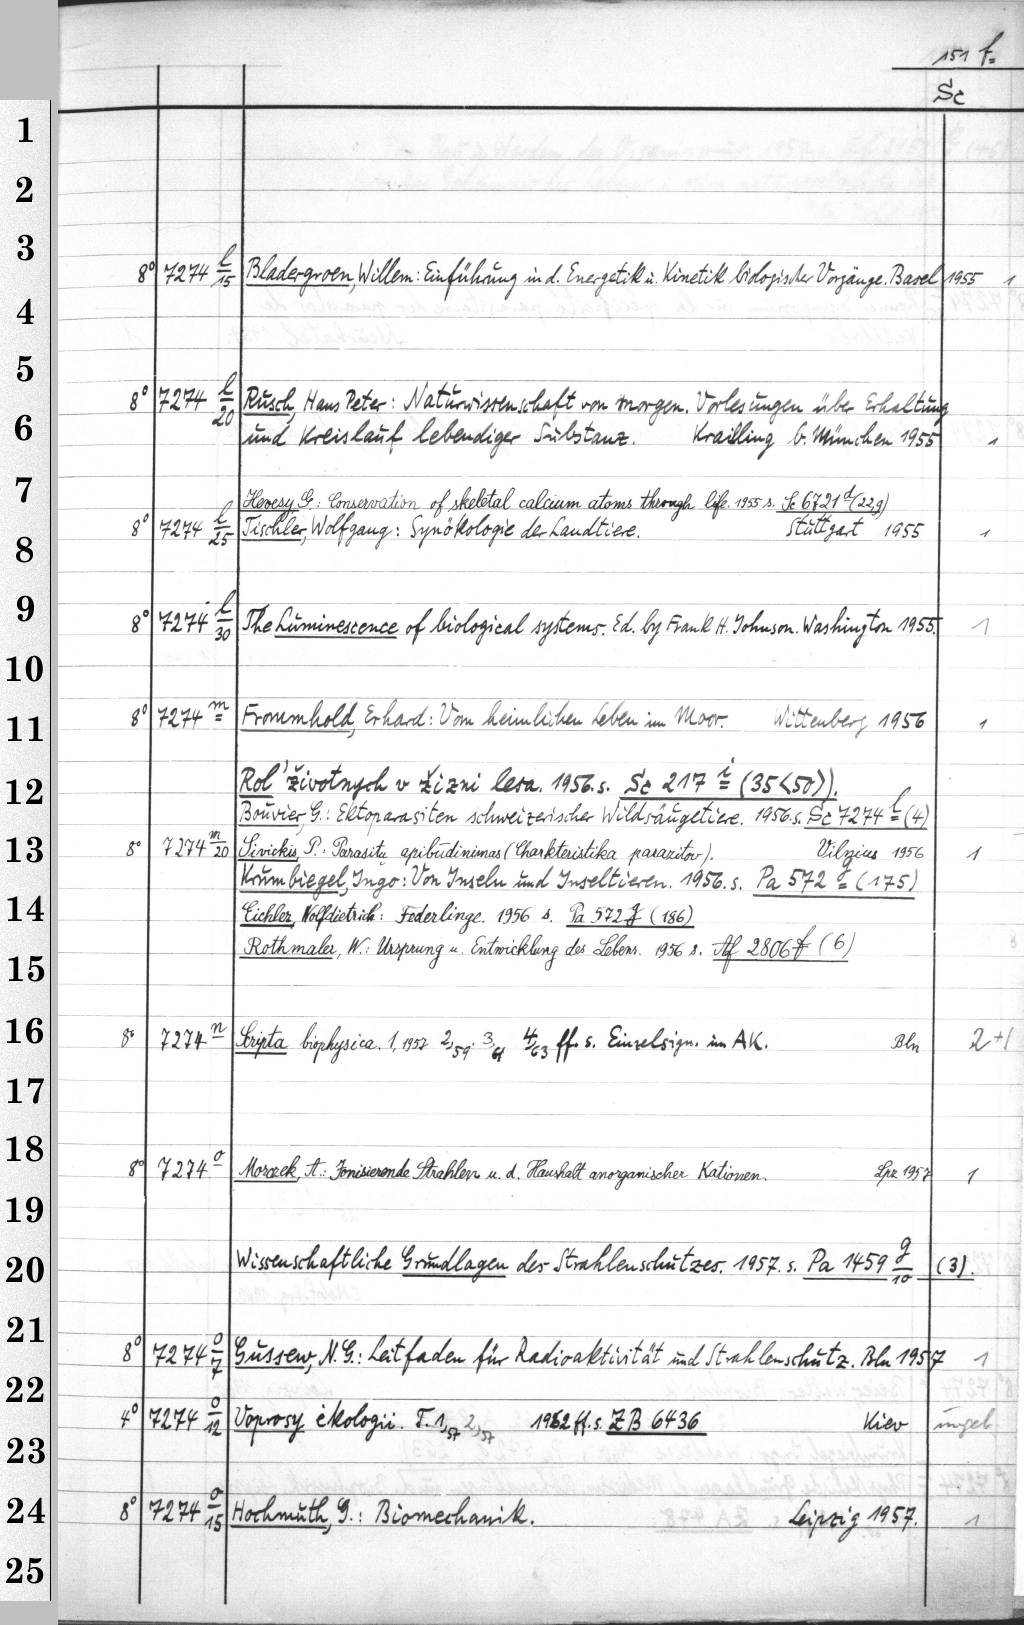 151 f=
Sc
1
2
3
8° 7274 l/15 Bladergroen, Willem: Einführung in d. Energetik u. Kinetik biologischer Vorgänge. Basel 1955 1
4
5
8° 7274 l/20 Rusch, Hans Peter: Naturwissenschaft von morgen. Vorlesungen über Erhaltung
6
und Kreislauf lebendiger Substanz. Krailling b. München 1955 1
7
Hevesy, G.: Conservation of skeletal calcium atoms through life. 1955 s. Sc 6721 d/(22,9)
8° 7274 l/25 Tischler, Wolfgang: Synökologie der Landtiere. Stuttgart 1955 1
8
9
8° 7274 l/30 The Luminescence of biological systems. Ed. by Frank H. Johnson. Washington 1955. 1
10
11
8° 7274 m= Frommhold, Erhard: Vom heimlichen Leben im Moor. Wittenberg 1956 1
12
Rol' životnych v žizni lesa. 1956. s. Sc 217 i= (35<50>).
Bouvier, G.: Ektoparasiten schweizerischer Wildsäugetiere. 1956. s. Sc 7274 l= (4)
13
8° 7274 m/20 Sivickis, P.: Parasitų apibudinimas (Charkteristika parazitov). Vilnius 1956 1
Krumbiegel, Ingo: Von Inseln und Inseltieren. 1956. s. Pa 572 g= (175)
14
Eichler, Wolfdietrich: Federlinge. 1956 s. Pa 572 g (186)
Rothmaler, W.: Ursprung u. Entwicklung des Lebens. 1956 s. Af 2806 f (6)
15
16
8° 7274 n Scripta biophysica. 1, 1957 2,59. 3,61 4/63 ff. s. Einzelsign. im AK. Bln 2+1
17
18
8° 7274 o Morczek, A.: Ionisierende Strahlen u. d. Haushalt anorganischer Kationen. Lpz 1957 1
19
20
Wissenschaftliche Grundlagen des Strahlenschutzes. 1957. s. Pa 1459 g/10 (3).
21
8° 7274 o/7 Gussew, N. G.: Leitfaden für Radioaktivität und Strahlenschutz. Bln 1957 1
22
4° 7274 o/12 Voprosy ėkologii. T. 1,57 2,57 1962 ff. s. ZB 6436 Kiev ungeb
23
24
8° 7274 o/15 Hochmuth, G.: Biomechanik. Leipzig 1957. 1
25